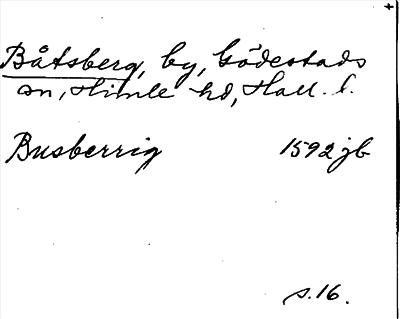 Båtsberg, by, Gödestads
sn, Himle hd, Hall. l.
Busberrig 1592 jb
s. 16.